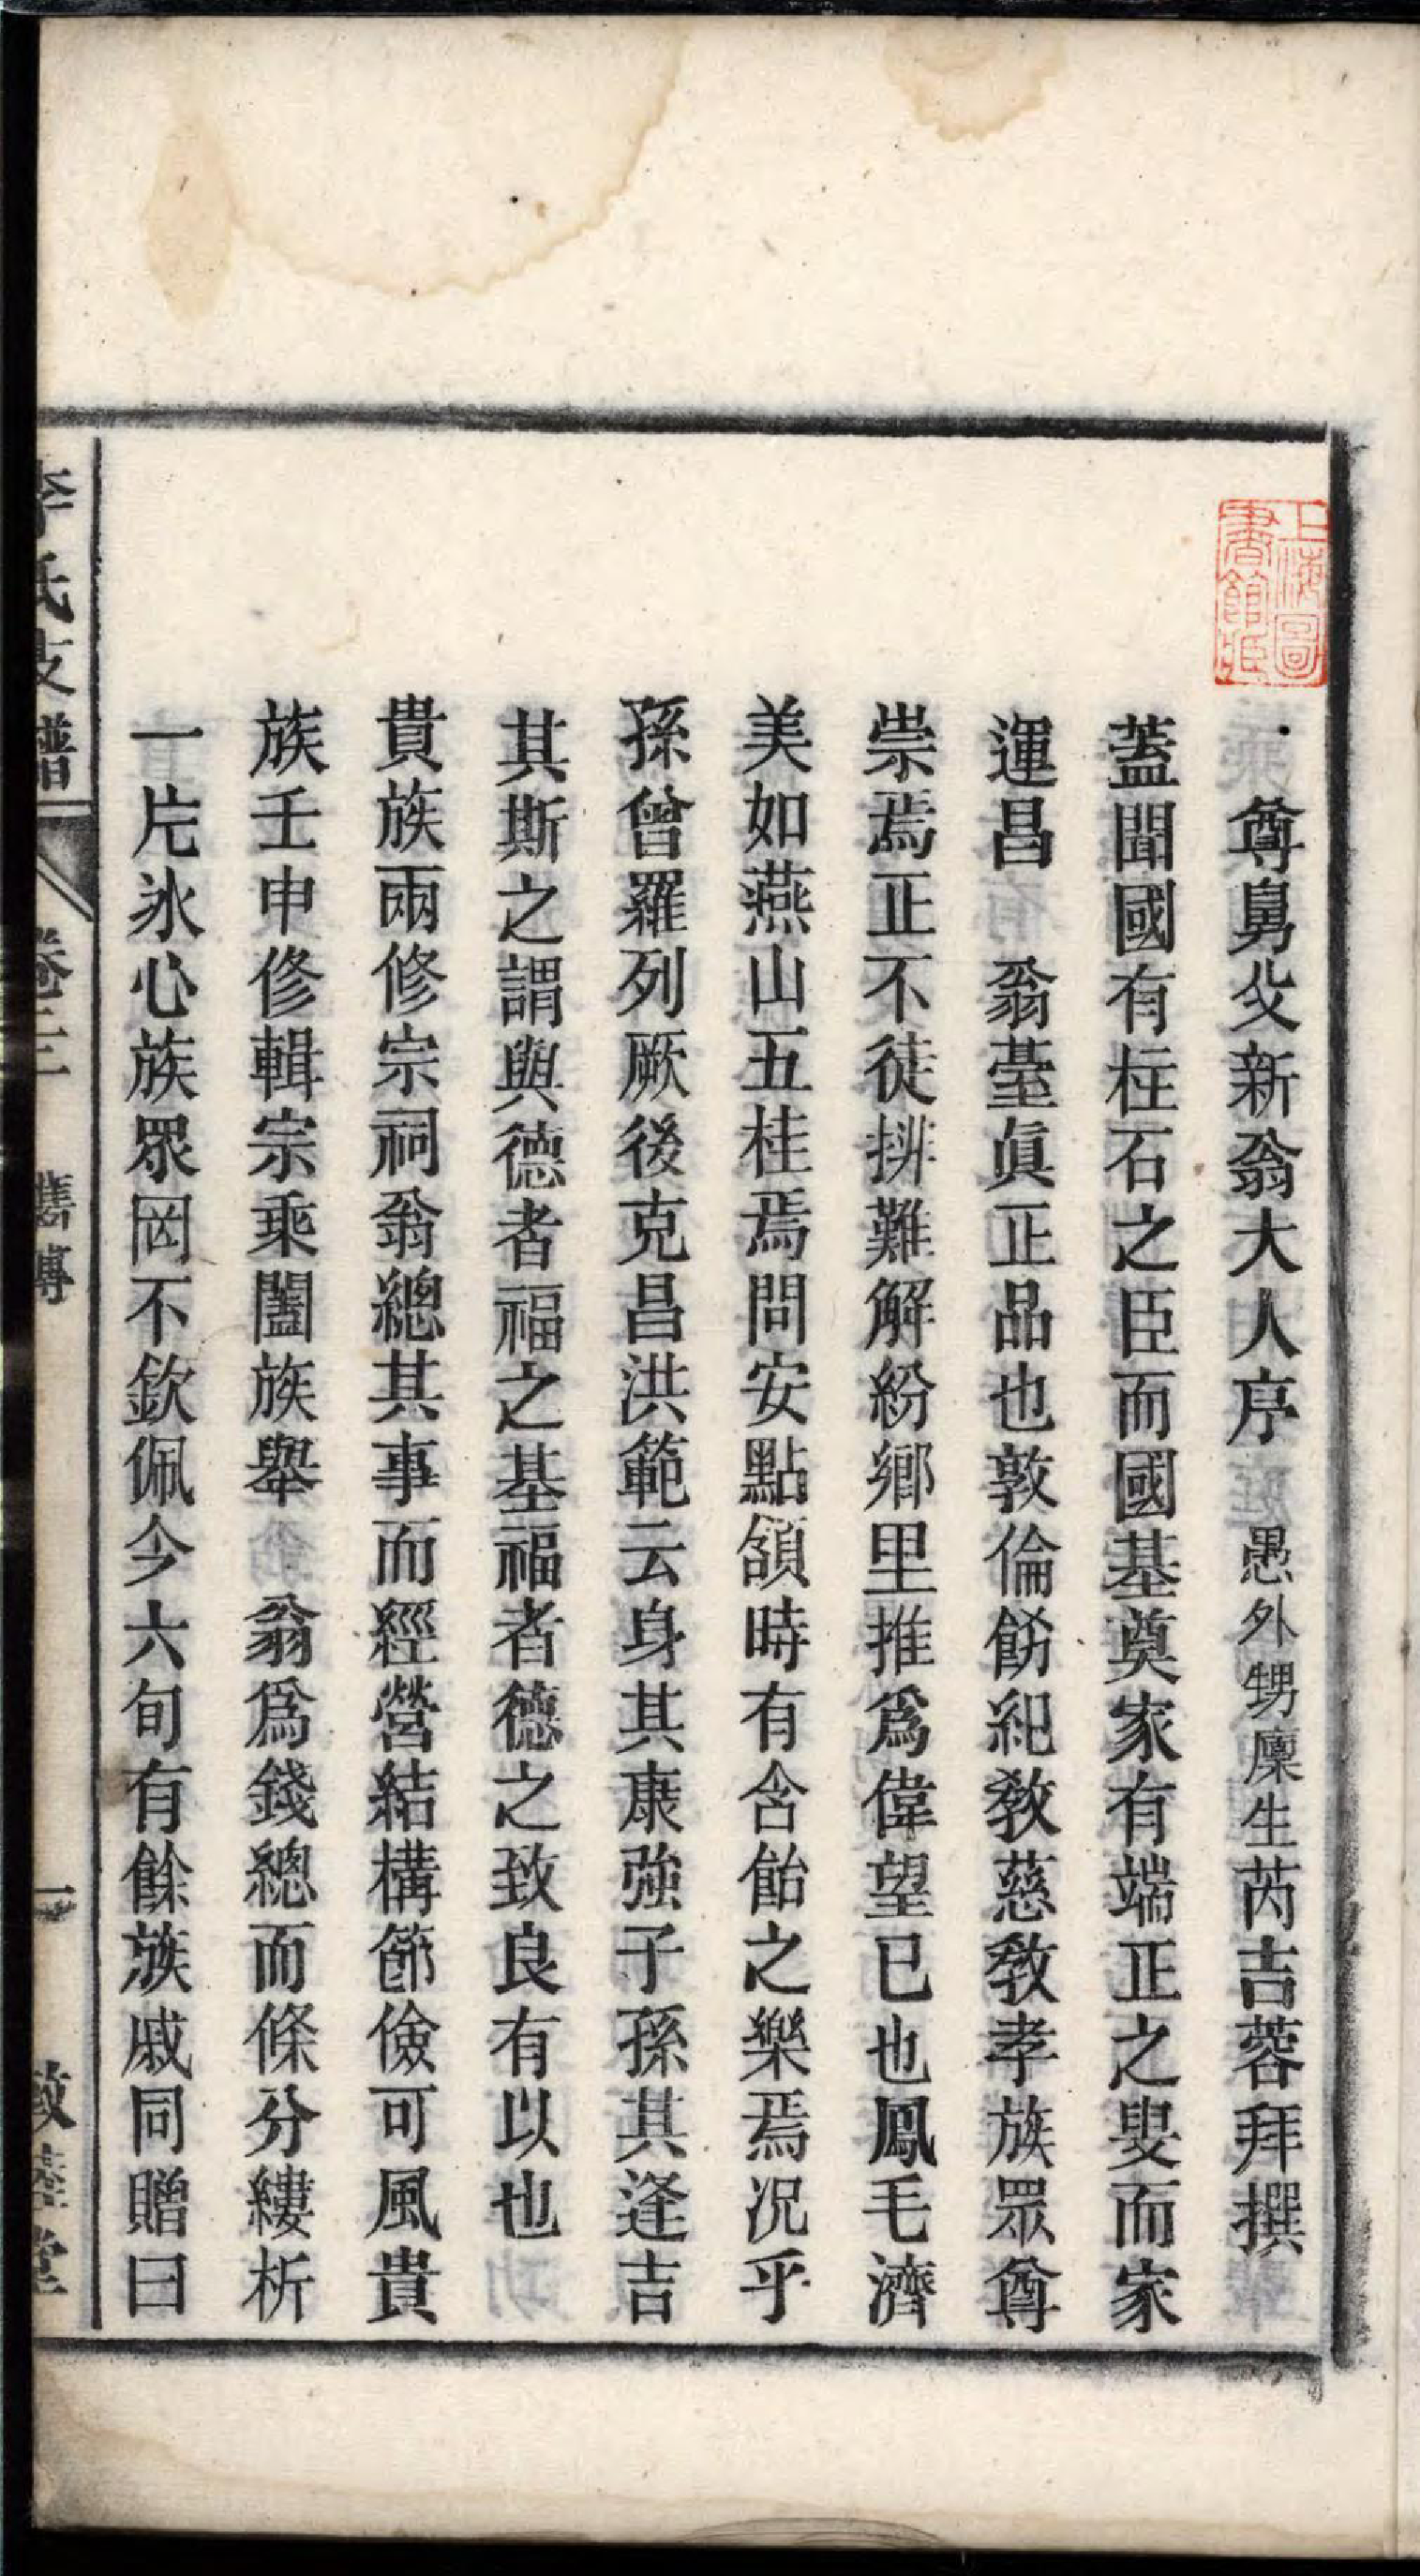 上海圖書館藏
尊舅父新翁大人序　愚外甥廩生芮吉蓉拜撰
蓋聞國有柱石之臣而國基奠家有端正之叟而家
運昌　翁臺眞正品也敦倫飭紀敎慈敎孝族眾尊
崇焉正不徒排難解紛鄉里推爲偉望已也鳳毛濟
美如燕山五桂焉問安點頷時有含飴之樂焉况乎
孫曾羅列厥後克昌洪範云身其康強子孫其逢吉
其斯之謂與德者福之基福者德之致良有以也
貴族兩修宗祠翁總其事而經營結構節儉可風貴
族壬申修輯宗乘闔族舉　翁爲錢總而條分縷析
一片氷心族眾罔不欽佩今六旬有餘族戚同贈曰
李氏支譜　卷三　舊傳　一　敦睦堂